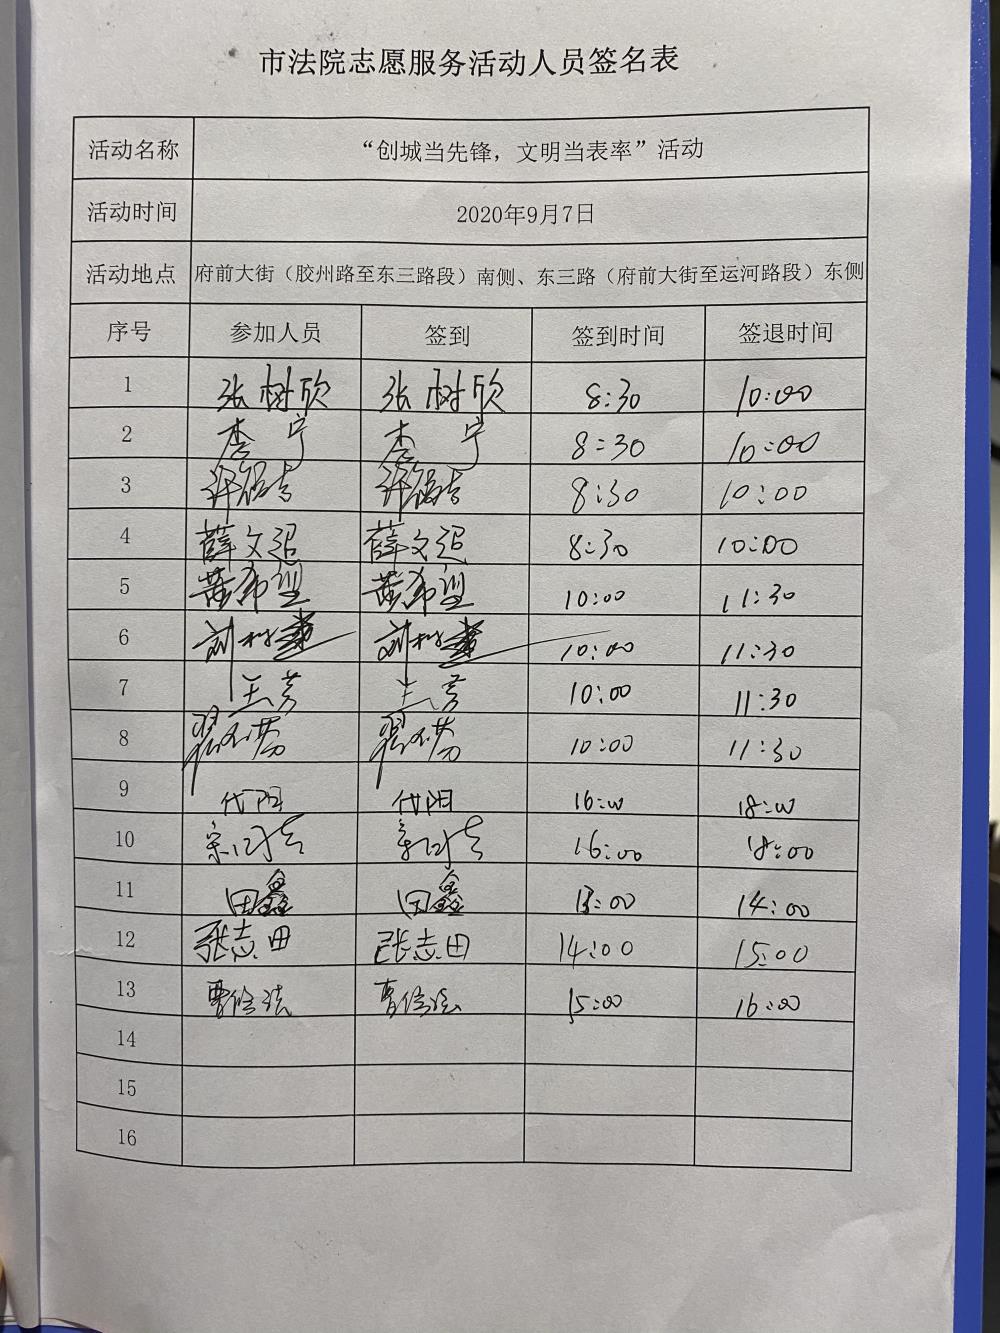 市法院志愿服务活动人员签名表
活动名称 “创城当先锋，文明当表率”活动
活动时间 2020年9月7日
活动地点 府前大街（胶州路至东三路段）南侧、东三路（府前大街至运河路段）东侧
序号 参加人员 签到 签到时间 签退时间
1 张树欣 张树欣 8:30 10:00
2 李宁 李宁 8:30 10:00
3 8:30 10:00
4 薛文超 薛文超 8:30 10:00
5 黄希望 黄希望 10:00 11:30
6 刘树 刘树 10:00 11:30
7 王芳 王芳 10:00 11:30
8 10:00 11:30
9 代阳 代阳 16:00 18:00
10 16:00 18:00
11 田鑫 田鑫 13:00 14:00
12 张志田 张志田 14:00 15:00
13 曹 曹 15:00 16:00
14
15
16